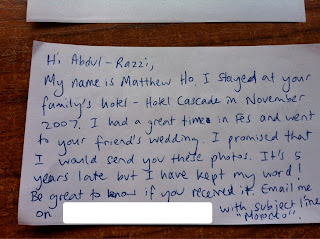 Hi Abdul-Razzi,
My name is Matthew Ho. I stayed at your
family's hotel - Hotel Cascade in November
2007. I had a great time in Fes and went
to your friend's wedding. I promised that
I would send you these photos. It's 5
years late but I have kept my word!
Be great to know if you received it. Email me
on with subject line
"Morocco".